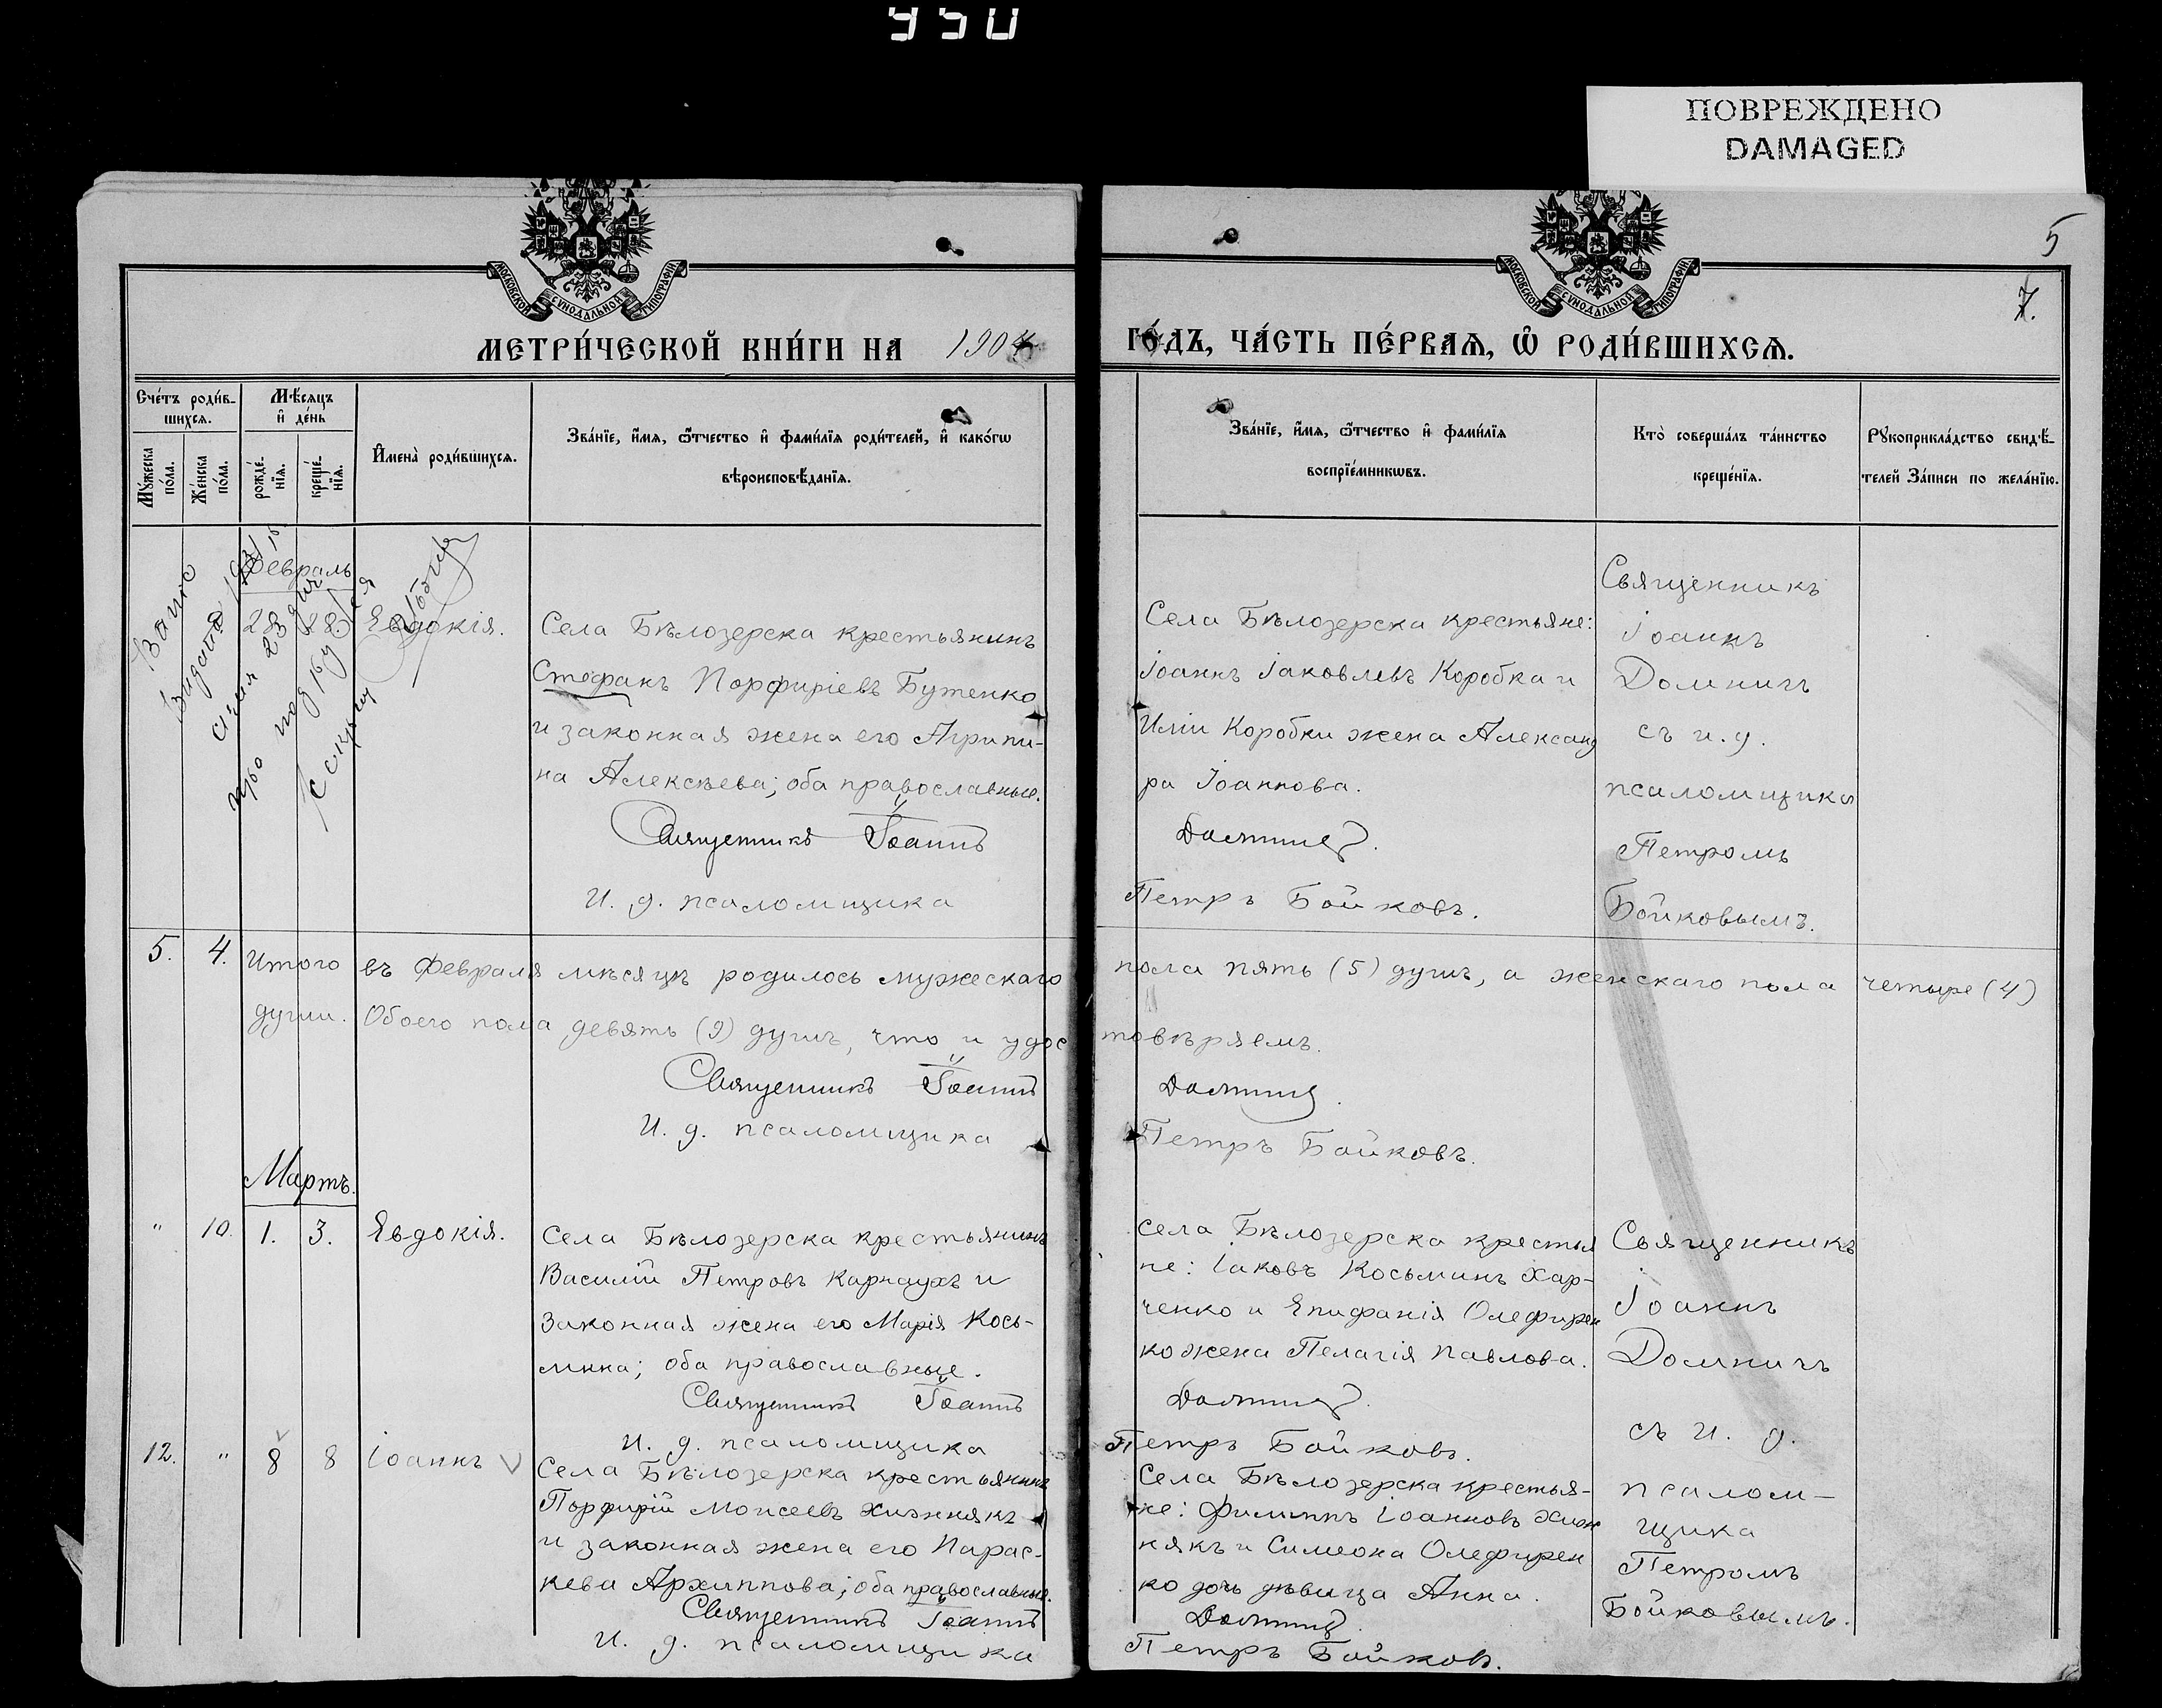 950
ПОВРЕЖДЕНО
DAMAGED
МОСКОВСКОЙ СѴНОДАЛЬНОЙ ТИПОГРАФІИ
МОСКОВСКОЙ СѴНОДАЛЬНОЙ ТИПОГРАФІИ
5
7.
МЕТРИ́ЧЕСКОЙ КНИ́ГИ НА 1904
ГО́ДЪ, ЧА́СТЬ ПЕ́РВАѦ, Ѡ҆ РОДИ́ВШИХСѦ.
Сче́тъ роди́в-
шихсѧ.
Мѣсѧцъ
и҆ де́нь
Мꙋ́жеска
по́ла.
Же́нска
по́ла.
рожде́-
нїѧ.
креще́-
нїѧ.
И҆мена̀ роди́вшихсѧ.
Зва́нїе, и҆́мѧ, ѻ҆́тчество и҆ фами́лїѧ роди́телей, и҆ како́гѡ
вѣроисповѣ́данїѧ.
Зва́нїе, и҆́мѧ, ѻ҆́тчество и҆ фами́лїѧ
воспрїе́мникѡвъ.
Кто̀ соверша́лъ та́инство
креще́нїѧ.
Рꙋкоприкла́дство свидѣ́-
телей За́писи по жела́нїю.
Февраль
28 28 Евдокія.
Села Бѣлозерска крестьянинъ
Стефанъ Порфиріевъ Бутенко
и законная жена его Агрипи-
на Алексѣева; оба православные.
Священникъ Іоаннъ
И. д. псаломщика
Села Бѣлозерска крестьяне:
Іоаннъ Іаковлевъ Коробка и
Иліи Коробки жена Александ
ра Іоаннова.
Домнич.
Петръ Бойковъ.
Священникъ
Іоаннъ
Домничъ
съ и. д.
псаломщика
Петромъ
Бойковымъ.
5. 4. Итого въ Февраля мѣсяцѣ родилось мужескаго пола пять (5) душъ, а женскаго пола четыре (4)
души. Обоего пола девять (9) душъ, что и удостовѣряемъ.
Священникъ Іоаннъ Домнич.
И. д. псаломщика Петръ Бойковъ.
Мартъ.
" 10. 1. 3. Евдокія.
Села Бѣлозерска крестьянинъ
Василій Петровъ Карнаухъ и
законная жена его Марія Кось-
мина; оба православные.
Священникъ Іоаннъ
И. д. псаломщика
села Бѣлозерска крестья
не: Іаковъ Косьминъ Хар-
ченко и Епифанія Олефирен
ко жена Пелагія Павлова.
Домнич.
Петръ Бойковъ.
Священникъ
Іоаннъ
Домничъ
съ и. д.
псалом-
щика
Петромъ
Бойковымъ.
12. " 8 8 Іоаннъ
Села Бѣлозерска крестьянинъ
Порфирій Моисеевъ Хижнякъ
и законная жена его Парас-
кева Архиппова; оба православные.
Священникъ Іоаннъ
И. д. псаломщика
Села Бѣлозерска крестья-
не: Филиппъ Іоанновъ Хиж
някъ и Симеона Олефирен
ко дочь дѣвица Анна.
Домнич.
Петръ Бойковъ.